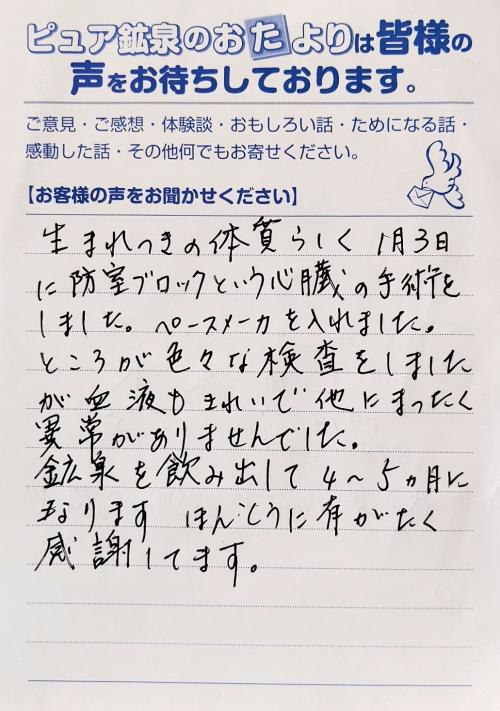 ピュア鉱泉のおたよりは皆様の
声をお待ちしております。
ご意見・ご感想・体験談・おもしろい話・ためになる話・
感動した話・その他何でもお寄せください。
【お客様の声をお聞かせください】
生まれつきの体質らしく 1月3日
に防室ブロックという心臓の手術を
しました。ペースメーカを入れました。
ところが色々な検査をしました
が血液もきれいで他にまったく
異常がありませんでした。
鉱泉を飲み出して4〜5ヵ月に
なります ほんとうに有がたく
感謝してます。